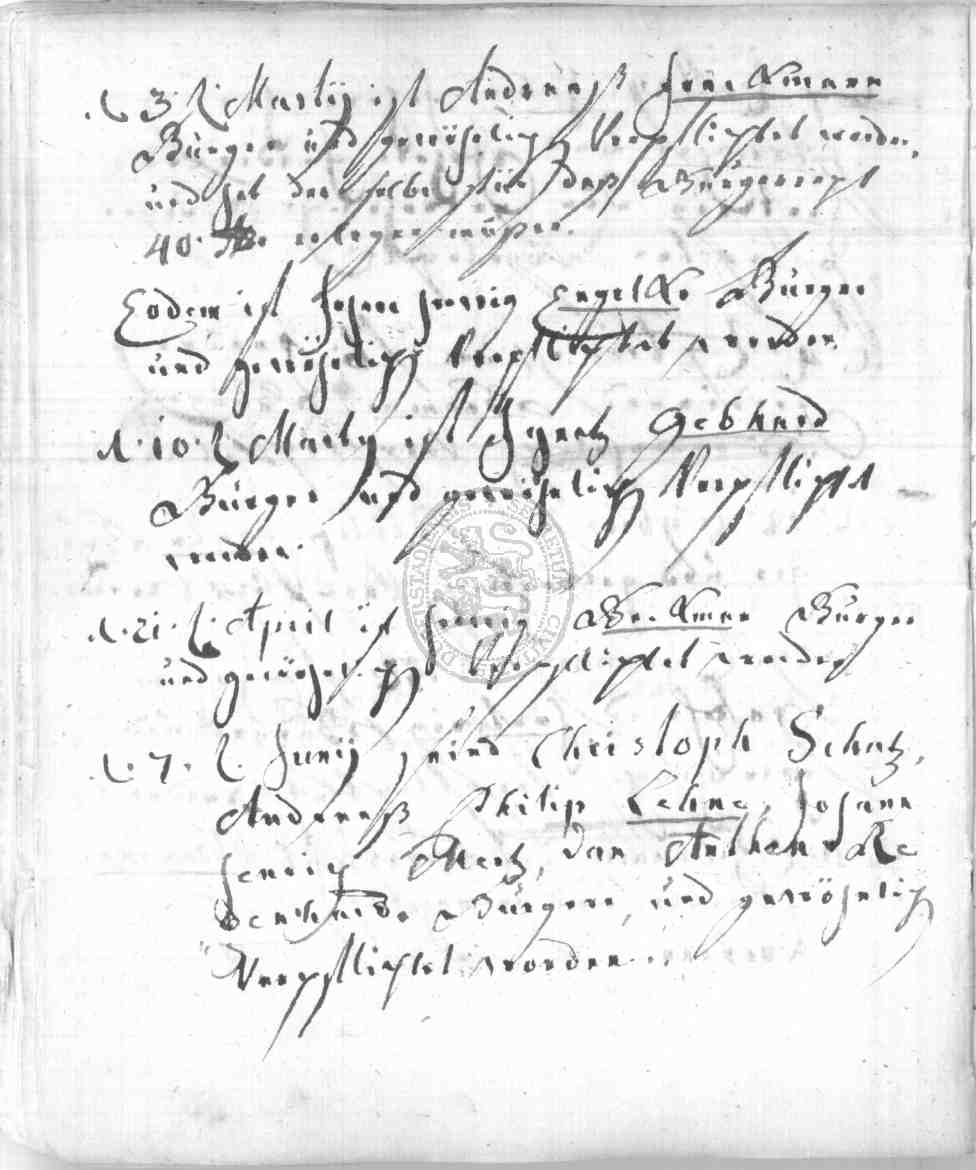 d. 3. t. Martij ist Andreaß Honekmann
Bürger und gewöhnlich Verpflichtet worden,
und hat der selbe für daß Bürgerrecht
40 erlegen müßen.
Eodem ist Johan Henrig Engelke Bürger
und gewöhnlich Verpflichtet worden.
d. 10. t. Marty ist Ignatz Gebhard
Bürger und gewöhnlich Verpflicht
worden.
d. 21. t. April ist Henrig Bürger
und gewöhnlich Verpflichtet worden
d. 7. t. Junij seind Christoph Schatz,
Andreaß Philip Lehne, Johann
Henrich Mertz, van Re
Bürgere, und gewöhnlich
Verpflichtet worden.